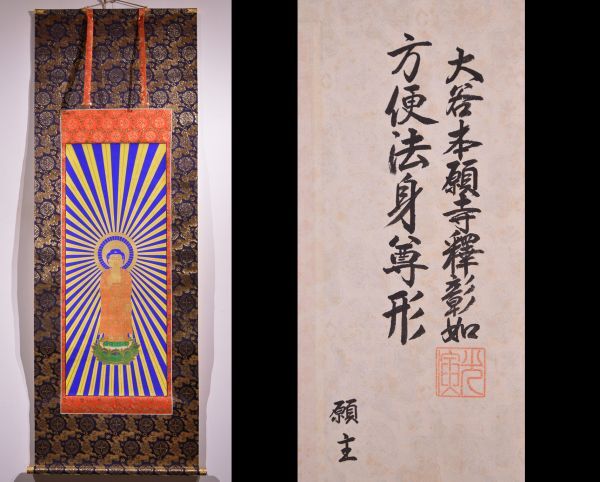 大谷本願寺釋彰如
方便法身尊形
光寅
願主